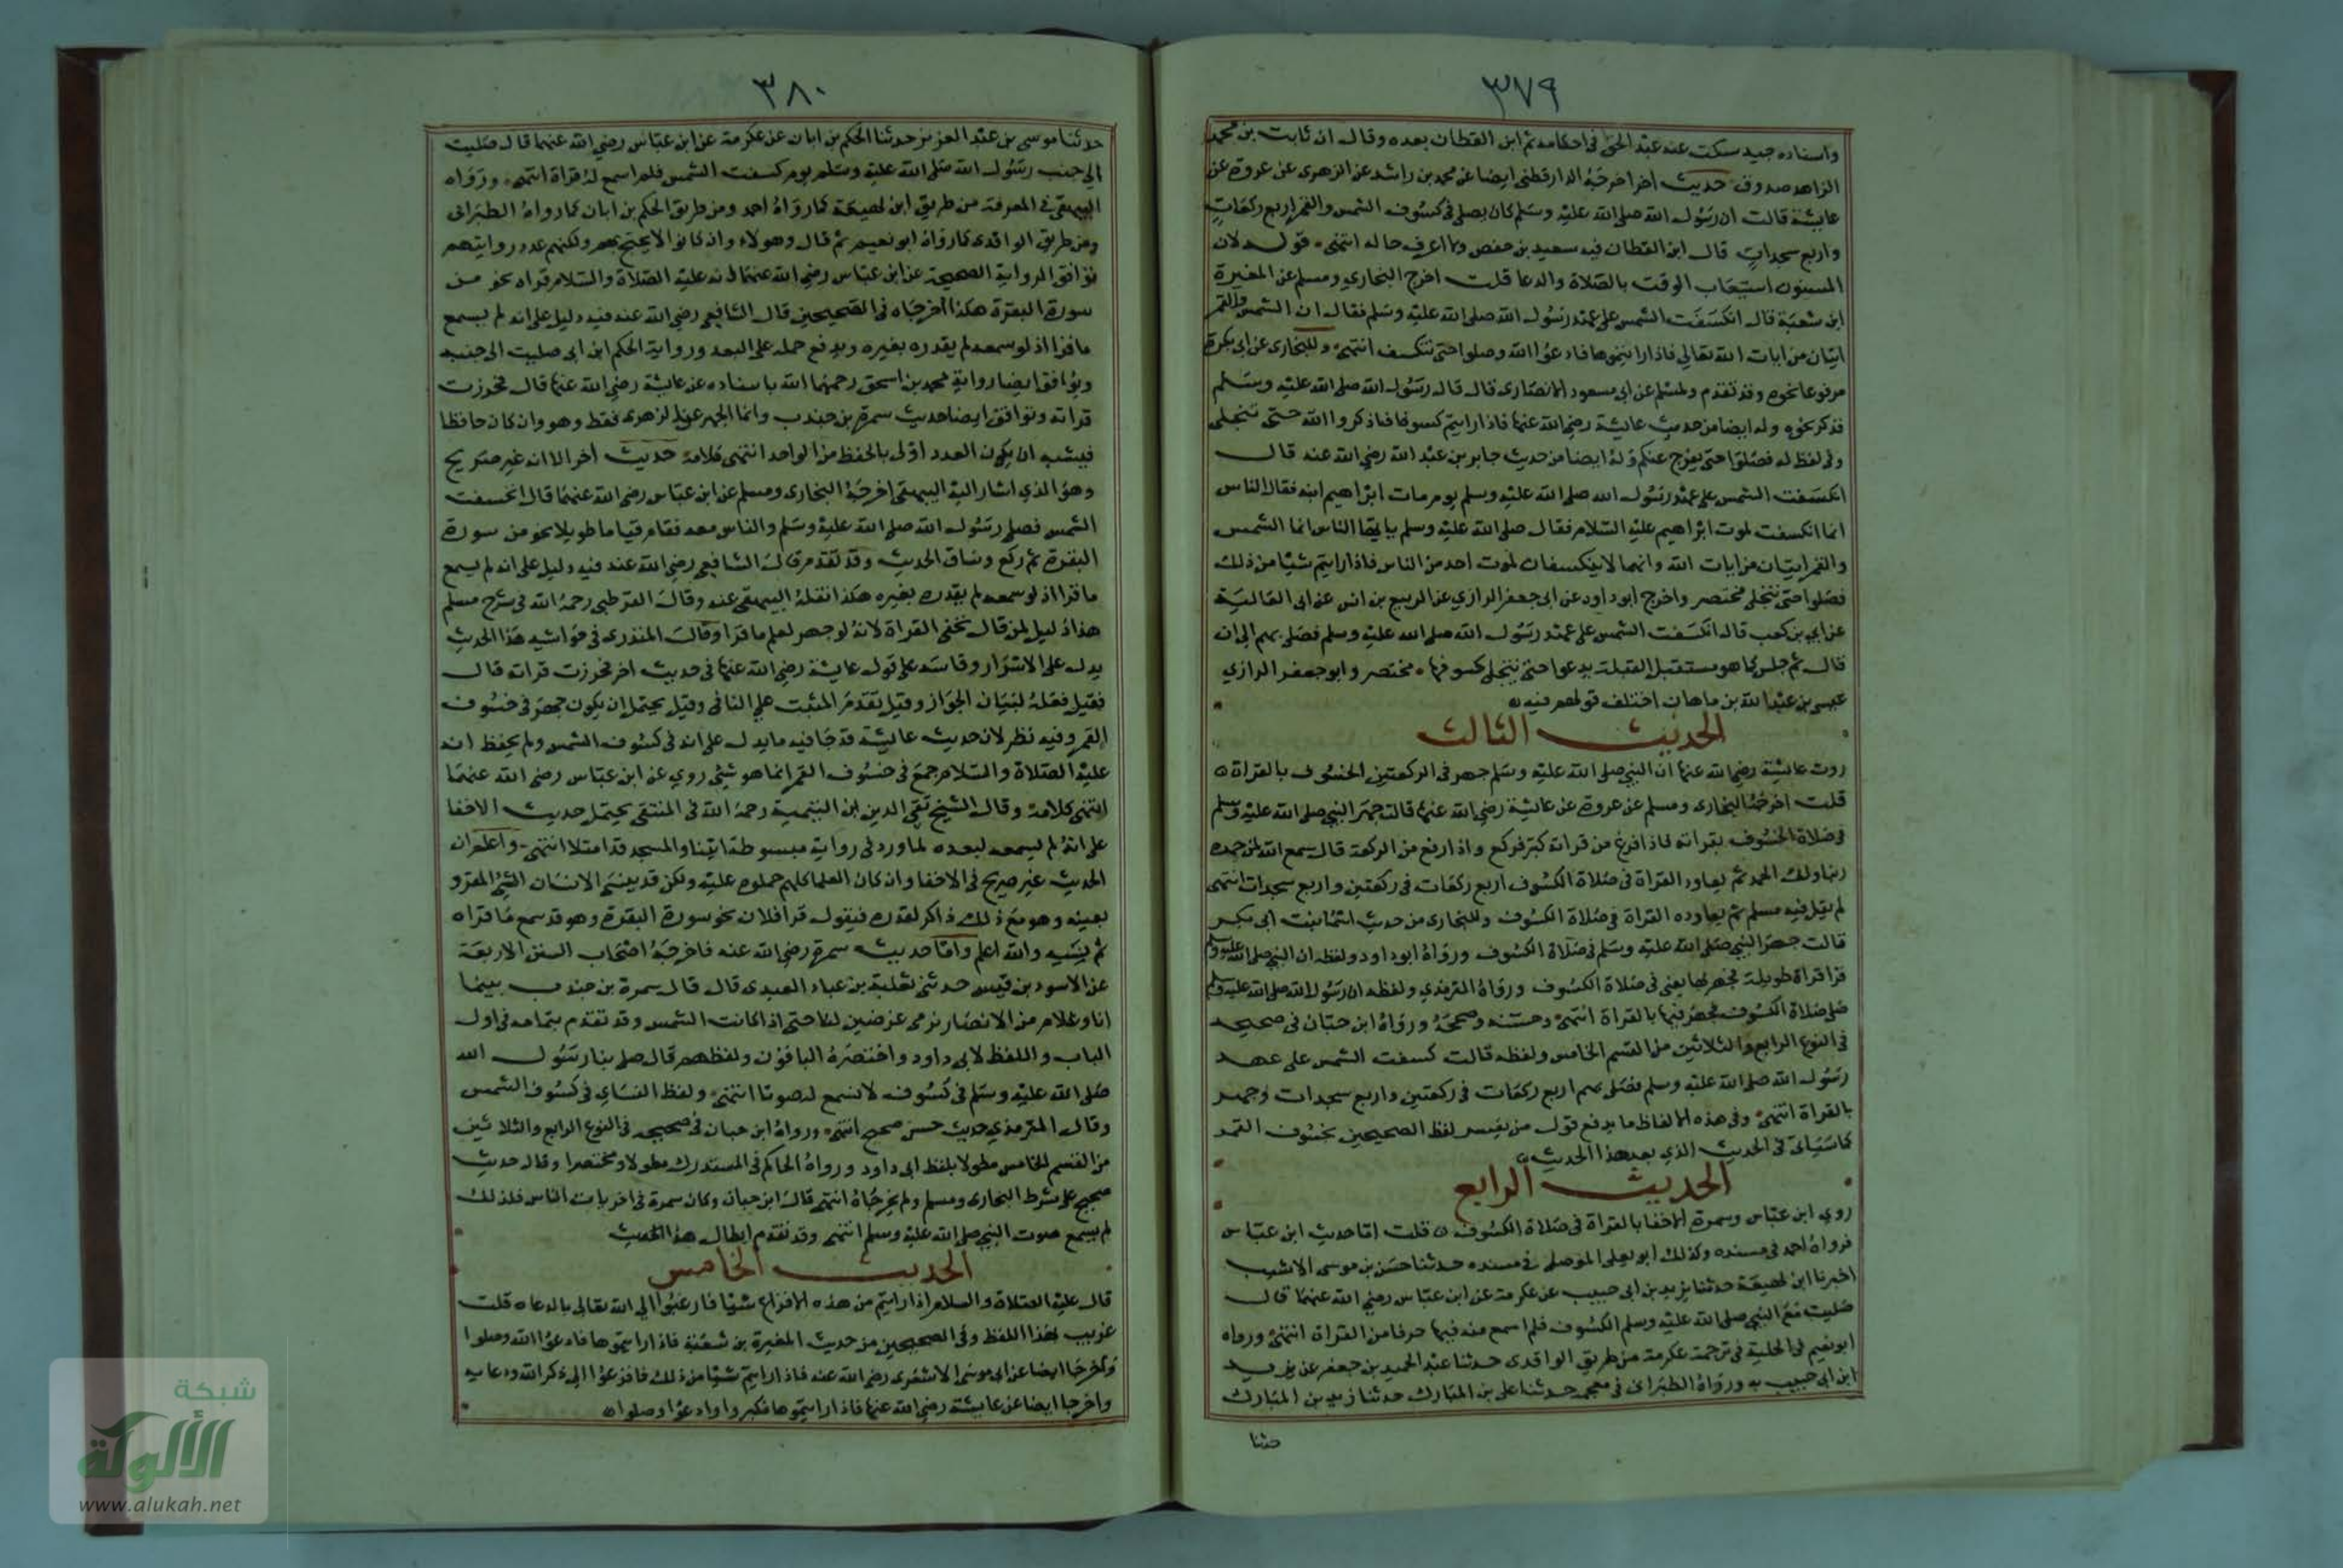 ٣٧٩
واسناده جيد سكت عنه عبد الحق في احكامه ثم ابن القطان بعده وقال ان ثابت بن محمد
الزاهد صدوق حديث اخر اخرجه الدارقطني ايضا عن محمد بن راشد عن الزهري عن عروة عن
عايشة قالت ان رسول الله صلى الله عليه وسلم كان يصلي في كسوف الشمس والقمر اربع ركعات
واربع سجدات قال ابن القطان فيه سعيد بن حفص ولا اعرف حاله انتهى قوله لان
المسنون استيعاب الوقت بالصلاة والدعا قلت اخرج البخاري ومسلم عن المغيرة
ابن شعبة قال انكسفت الشمس على عهد رسول الله صلى الله عليه وسلم فقال ان الشمس والقمر
ايتان من ايات الله تعالى فاذا رايتموها فادعوا الله وصلوا حتى تنكسف انتهى وللبخاري عن ابي بكرة
مرفوعا نحوه وقد تقدم ولمسلم عن ابي مسعود الانصاري قال قال رسول الله صلى الله عليه وسلم
فذكر نحوه وله ايضا من حديث عايشة رضي الله عنها فاذا رايتم كسوفا فاذكروا الله حتى تنجلي
وفي لفظ له فصلوا حتى يفرج عنكم وله ايضا من حديث جابر بن عبد الله رضي الله عنه قال
انكسفت الشمس على عهد رسول الله صلى الله عليه وسلم يوم مات ابراهيم ابنه فقال الناس
انما انكسفت لموت ابراهيم عليه السلام فقال صلى الله عليه وسلم يا ايها الناس انما الشمس
والقمر ايتان من ايات الله وانهما لا ينكسفان لموت احد من الناس فاذا رايتم شيا من ذلك
فصلوا حتى تنجلي مختصر واخرج ابو داود عن ابي جعفر الرازي عن الربيع بن انس عن ابي العالية
عن ابي بن كعب قال انكسفت الشمس على عهد رسول الله صلى الله عليه وسلم فصلى بهم الى ان
قال ثم جلس كما هو مستقبل القبلة يدعوا حتى تنجلي كسوفها مختصر وابو جعفر الرازي
عيسى بن عبد الله بن ماهان اختلف قولهم فيه
الحديث الثالث
روت عايشة رضي الله عنها ان النبي صلى الله عليه وسلم جهر في الركعتين الخسوف بالقراة
قلت اخرجه البخاري ومسلم عن عروة عن عايشة رضي الله عنها قالت جهر النبي صلى الله عليه وسلم
في صلاة الخسوف بقراته فاذا فرغ من قراته كبر فركع واذا رفع من الركعة قال سمع الله لمن حمده
ربنا ولك الحمد ثم يعاود القراة في صلاة الكسوف اربع ركعات في ركعتين واربع سجدات انتهى
لم يقل فيه مسلم ثم يعاوده القراة في صلاة الكسوف وللبخاري من حديث اسما بنت ابي بكر
قالت جهر النبي صلى الله عليه وسلم في صلاة الكسوف ورواه ابو داود ولفظه ان النبي صلى الله عليه وسلم
قرا قراة طويلة فجهر بها يعني في صلاة الكسوف ورواه الترمذي ولفظه ان رسول الله صلى الله عليه وسلم
صلى صلاة الكسوف فجهر فيها بالقراة انتهى وحسنه وصححه ورواه ابن حبان في صحيحه
في النوع الرابع والثلاثين من القسم الخامس ولفظه قالت كسفت الشمس على عهد
رسول الله صلى الله عليه وسلم فصلى بهم اربع ركعات في ركعتين واربع سجدات وجهر
بالقراة انتهى وفي هذه الالفاظ ما يدفع قول من يفسر لفظ الصحيحين بخسوف القمر
كما سياتي في الحديث الذي بعد هذا الحديث
الحديث الرابع
روي ابن عباس وسمرة الاخفا بالقراة في صلاة الكسوف قلت اما حديث ابن عباس
فرواه احمد في مسنده وكذلك ابو يعلى الموصلي في مسنده حدثنا حسن بن موسى الاشيب
اخبرنا ابن لهيعة حدثنا يزيد بن ابي حبيب عن عكرمة عن ابن عباس رضي الله عنهما قال
صليت مع النبي صلى الله عليه وسلم الكسوف فلم اسمع منه فيها حرفا من القراة انتهى ورواه
ابو نعيم في الحلية في ترجمة عكرمة من طريق الواقدي حدثنا عبد الحميد بن جعفر عن يزيد
ابن ابي حبيب به ورواه الطبراني في معجمه حدثنا علي بن المبارك حدثنا زيد بن المبارك
حدثنا
٣٨٠
حدثنا موسى بن عبد العزيز حدثنا الحكم بن ابان عن عكرمة عن ابن عباس رضي الله عنهما قال صليت
الى جنب رسول الله صلى الله عليه وسلم يوم كسفت الشمس فلم اسمع له قراة انتهى ورواه
البيهقي في المعرفة من طريق ابن لهيعة كما رواه احمد ومن طريق الحكم بن ابان كما رواه الطبراني
ومن طريق الواقدي كما رواه ابو نعيم ثم قال وهولاء وان كانوا لا يحتج بهم ولكنهم عدد روايتهم
توافق الرواية الصحيحة عن ابن عباس رضي الله عنهما انه عليه الصلاة والسلام قراه نحو من
سورة البقرة هكذا اخرجاه في الصحيحين قال الشافعي رضي الله عنه فيه دليل على انه لم يسمع
ما قرا اذ لو سمعه لم يقدره بغيره ويدفع حمله على البعد ورواية الحكم ابن ابي صليت الى جنبه
ويوافق ايضا رواية محمد بن اسحق رحمهما الله باسناده عن عايشة رضي الله عنها قال فحزرت
قراته وتوافق ايضا حديث سمرة بن جندب وانما الجهر عن الزهري فقط وهو وان كان حافظا
فيشبه ان يكون العدد اولى بالحفظ من الواحد انتهى كلامه حديث اخر الا انه غير صريح
وهو الذي اشار اليه البيهقي اخرجه البخاري ومسلم عن ابن عباس رضي الله عنهما قال انخسفت
الشمس فصلى رسول الله صلى الله عليه وسلم والناس معه فقام قياما طويلا نحو من سورة
البقرة ثم ركع وساق الحديث وقد تقدم قال الشافعي رضي الله عنه فيه دليل على انه لم يسمع
ما قرا اذ لو سمعه لم يقدره بغيره هكذا نقله البيهقي عنه وقال القرطبي رحمه الله في شرح مسلم
هذا دليل لمن قال تخفى القراة لانه لو جهر لعلم ما قرا وقال المنذري في حواشيه هذا الحديث
يدل على الاسرار وقاسه على قول عايشة رضي الله عنها في حديث اخر فحزرت قراته قال
فقيل فعله لبيان الجواز وقيل تقدم المثبت على النافي وقيل يحتمل ان يكون جهر في خسوف
القمر وفيه نظر لان حديث عايشة قد جا فيه ما يدل على انه في كسوف الشمس ولم يحفظ انه
عليه الصلاة والسلام جمع في خسوف القمر انما هو شي روي عن ابن عباس رضي الله عنهما
انتهى كلامه وقال الشيخ تقي الدين ابن التيمية رحمه الله في المنتقى يحتمل حديث الاخفا
على انه لم يسمعه لبعده لما ورد في رواية مبسوطة اتينا والمسجد قد امتلا انتهى واعلم ان
الحديث غير صريح في الاخفا وان كان العلما كلهم حملوه عليه ولكن قد ينسى الانسان الشي المقرو
بعينه وهو مع ذلك ذاكر لقدره فيقول قرا فلان نحو سورة البقرة وهو قد سمع ما قراه
ثم نسيه والله اعلم واما حديث سمرة رضي الله عنه فاخرجه اصحاب السنن الاربعة
عن الاسود بن قيس حدثني ثعلبة بن عباد العبدي قال قال سمرة بن جندب بينما
انا وغلام من الانصار نرمي غرضين لنا حتى اذا كانت الشمس وقد تقدم بتمامه في اول
الباب واللفظ لابي داود واختصره الباقون ولفظهم قال صلى بنا رسول الله
صلى الله عليه وسلم في كسوف لا نسمع له صوتا انتهى ولفظ النساي في كسوف الشمس
وقال الترمذي حديث حسن صحيح انتهى ورواه ابن حبان في صحيحه في النوع الرابع والثلاثين
من القسم الخامس مطولا بلفظ ابي داود ورواه الحاكم في المستدرك مطولا ومختصرا وقال حديث
صحيح على شرط البخاري ومسلم ولم يخرجاه انتهى قال ابن حبان وكان سمرة في اخريات الناس فلذلك
لم يسمع صوت النبي صلى الله عليه وسلم انتهى وقد تقدم ابطال هذا الحديث
الحديث الخامس
قال عليه الصلاة والسلام اذا رايتم من هذه الافزاع شيا فارغبوا الى الله تعالى بالدعاه قلت
غريب بهذا اللفظ وفي الصحيحين من حديث المغيرة بن شعبة فاذا رايتموها فادعوا الله وصلوا
واخرجا ايضا عن ابي موسى الاشعري رضي الله عنه فاذا رايتم شيا من ذلك فافزعوا الى ذكر الله ودعايه
واخرجا ايضا عن عايشة رضي الله عنها فاذا رايتموها فكبروا وادعوا وصلوا
شبكة
الألوكة
www.alukah.net